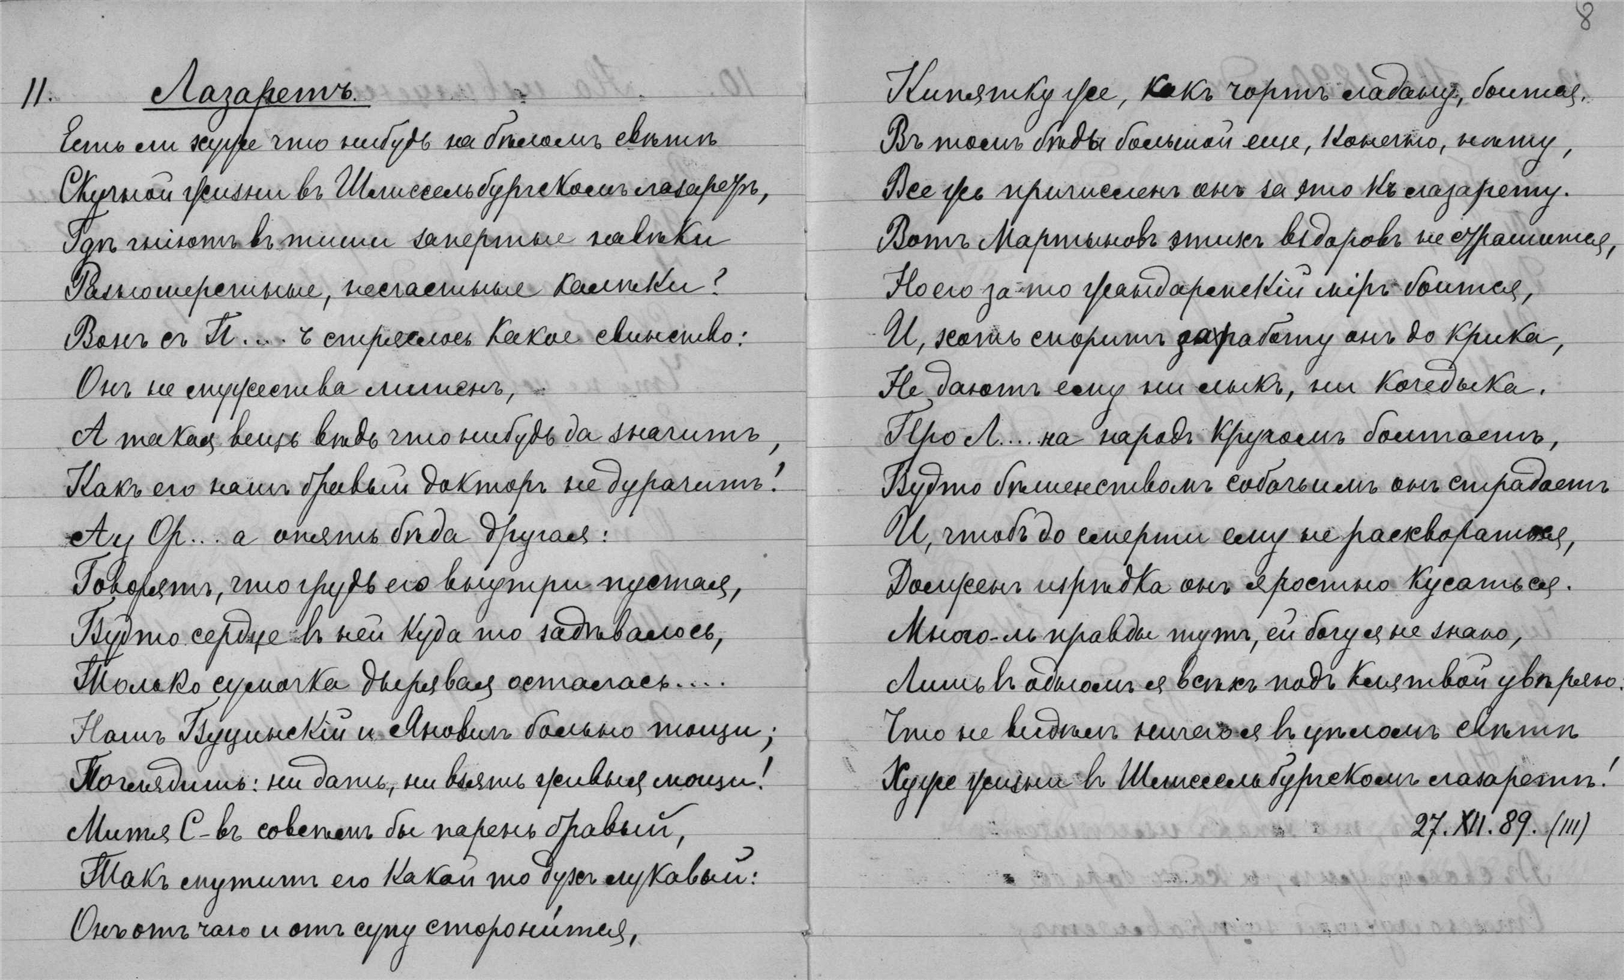 8
11. Лазаретъ.
Есть ли хуже что нибудь на бѣломъ свѣтѣ
Скучной жизни въ Шлиссельбургскомъ лазаретѣ,
Гдѣ гніютъ въ тиши запертые навѣки
Разношерстные, несчастные калѣки?
Вонъ съ П.... ч стряслось какое свинство:
Онъ не мужества лишенъ,
А такая вещь вѣдь что нибудь да значитъ,
Какъ его нашъ бравый докторъ не дурачитъ!
А у Ор... а опять бѣда другая:
Говорятъ, что грудь его внутри пустая,
Будто сердце въ ней куда то задѣвалось,
Только сумочка дырявая осталась....
Нашъ Буцинскій и Яновичъ больно тощи;
Поглядишь: ни дать, ни взять живыя мощи!
Митя С-въ совсѣмъ бы парень бравый,
Такъ мутитъ его какой то духъ лукавый:
Онъ отъ чаю и отъ супу сторонится,
Кипятку же, какъ чортъ ладану, боится.
Въ томъ бѣды большой еще, конечно, нѣту,
Все жъ причисленъ онъ за это къ лазарету.
Вотъ Мартыновъ этихъ вздоровъ не страшится,
Но его за-то жандармскій міръ боится,
И, хоть споритъ за работу онъ до крика,
Не даютъ ему ни лыкъ, ни кочедыка.
Про Л....на народъ кругомъ болтаетъ,
Будто бѣшенствомъ собачьимъ онъ страдаетъ
И, чтобъ до смерти ему не расквораться,
Долженъ изрѣдка онъ яростно кусаться.
Много-ль правды тутъ, ей богу я не знаю,
Лишь въ одномъ я всѣхъ подъ клятвой увѣряю:
Что не видѣлъ ничего я въ цѣломъ свѣтѣ
Хуже жизни въ Шлиссельбургскомъ лазаретѣ!
27. XII. 89. (III)